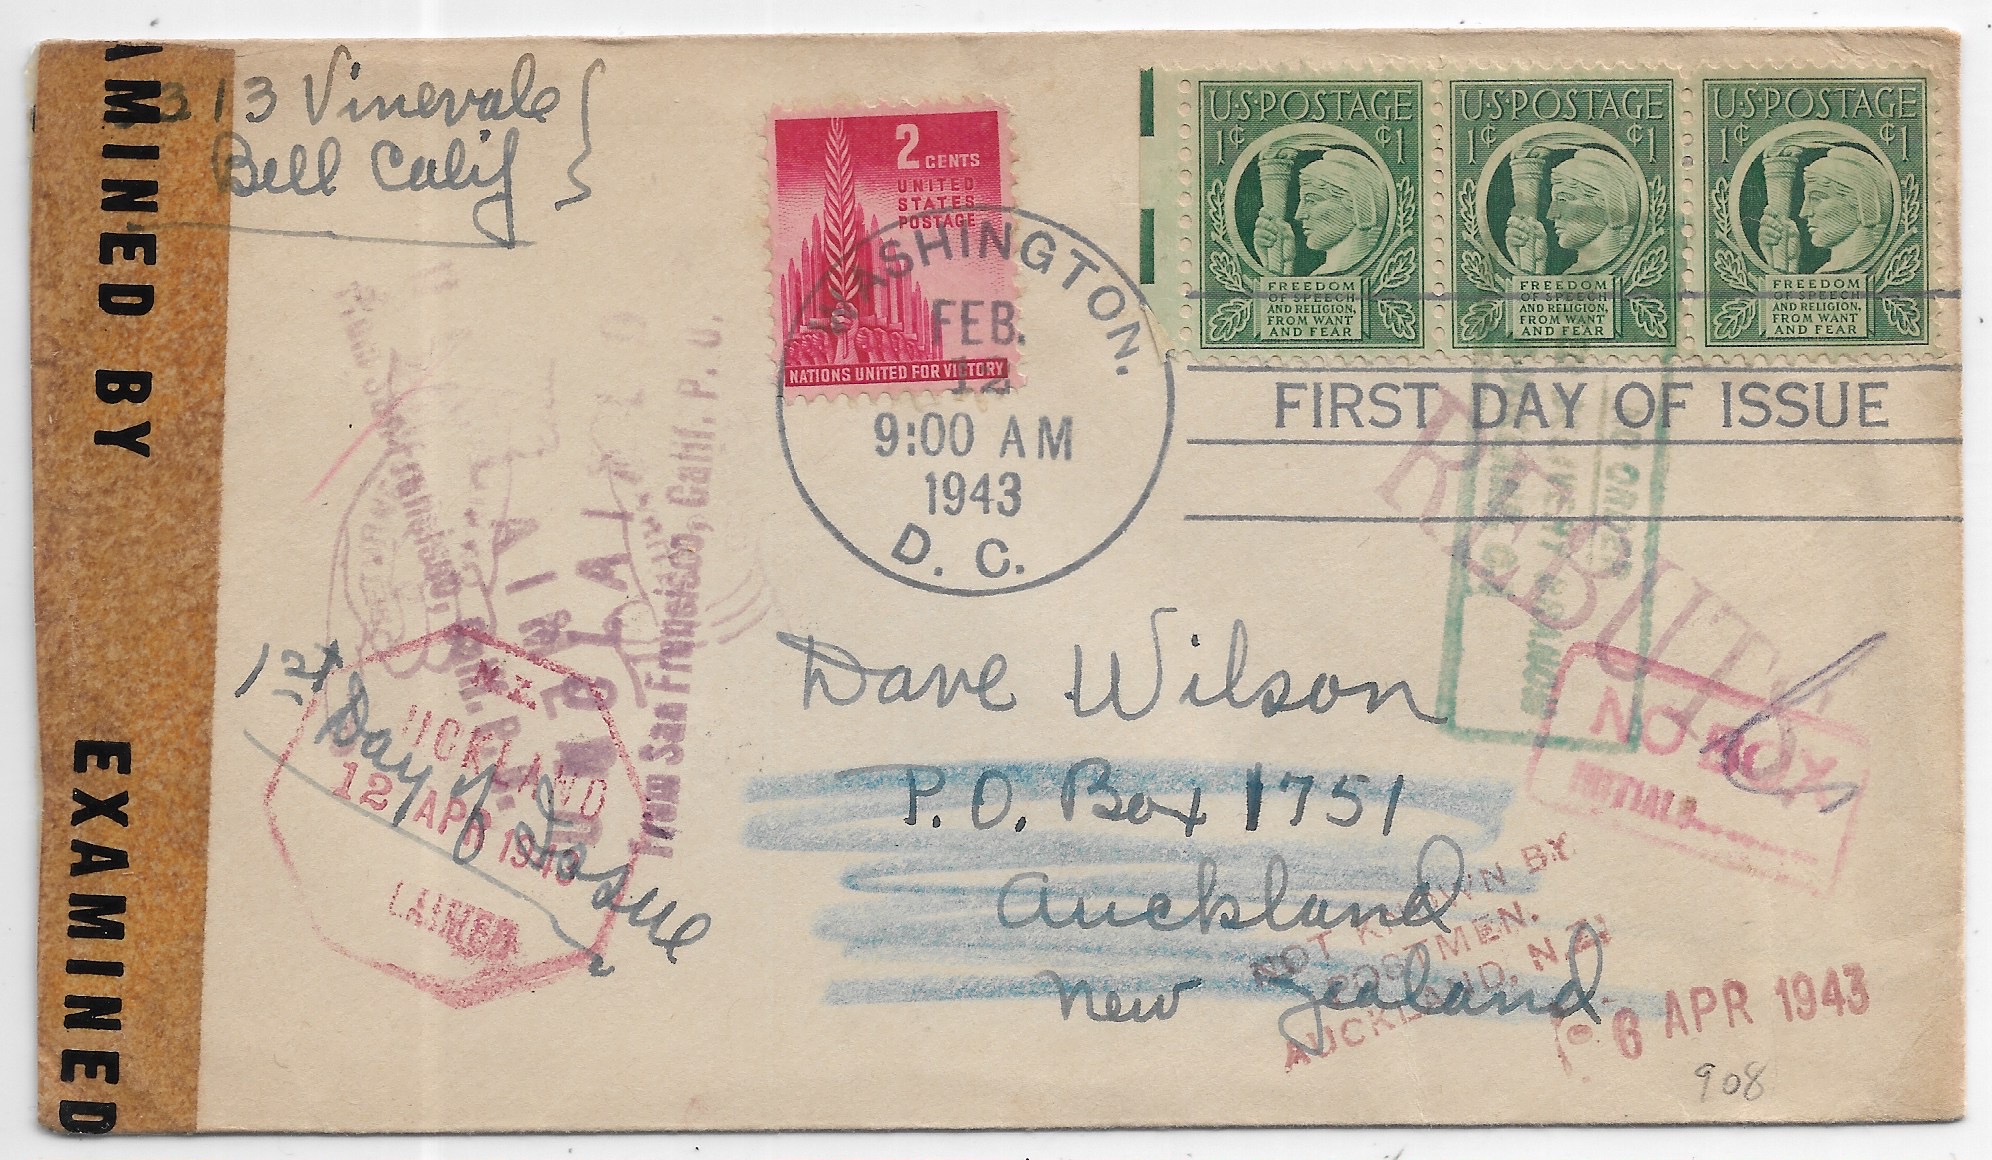 AMINED BY
EXAMINED
313 Vinevale
Bell Calif
2 CENTS
UNITED
STATES
POSTAGE
NATIONS UNITED FOR VICTORY
U·S·POSTAGE
1¢ ¢1
FREEDOM
OF SPEECH
AND RELIGION,
FROM WANT
AND FEAR
U·S·POSTAGE
1¢ ¢1
FREEDOM
OF SPEECH
AND RELIGION,
FROM WANT
AND FEAR
U·S·POSTAGE
1¢ ¢1
FREEDOM
OF SPEECH
AND RELIGION,
FROM WANT
AND FEAR
WASHINGTON.
FEB.
12
9:00 AM
1943
D. C.
FIRST DAY OF ISSUE
REBUTS
From San Francisco, Calif. P. O.
1st Day of Issue
N.Z.
UCKLAND
12 APR 1943
Dave Wilson
P.O. Box 1751
Auckland
New Zealand
NO BOX
INITIALS
NOT KNOWN BY
POSTMEN.
AUCKLAND, N.Z.
6 APR 1943
908